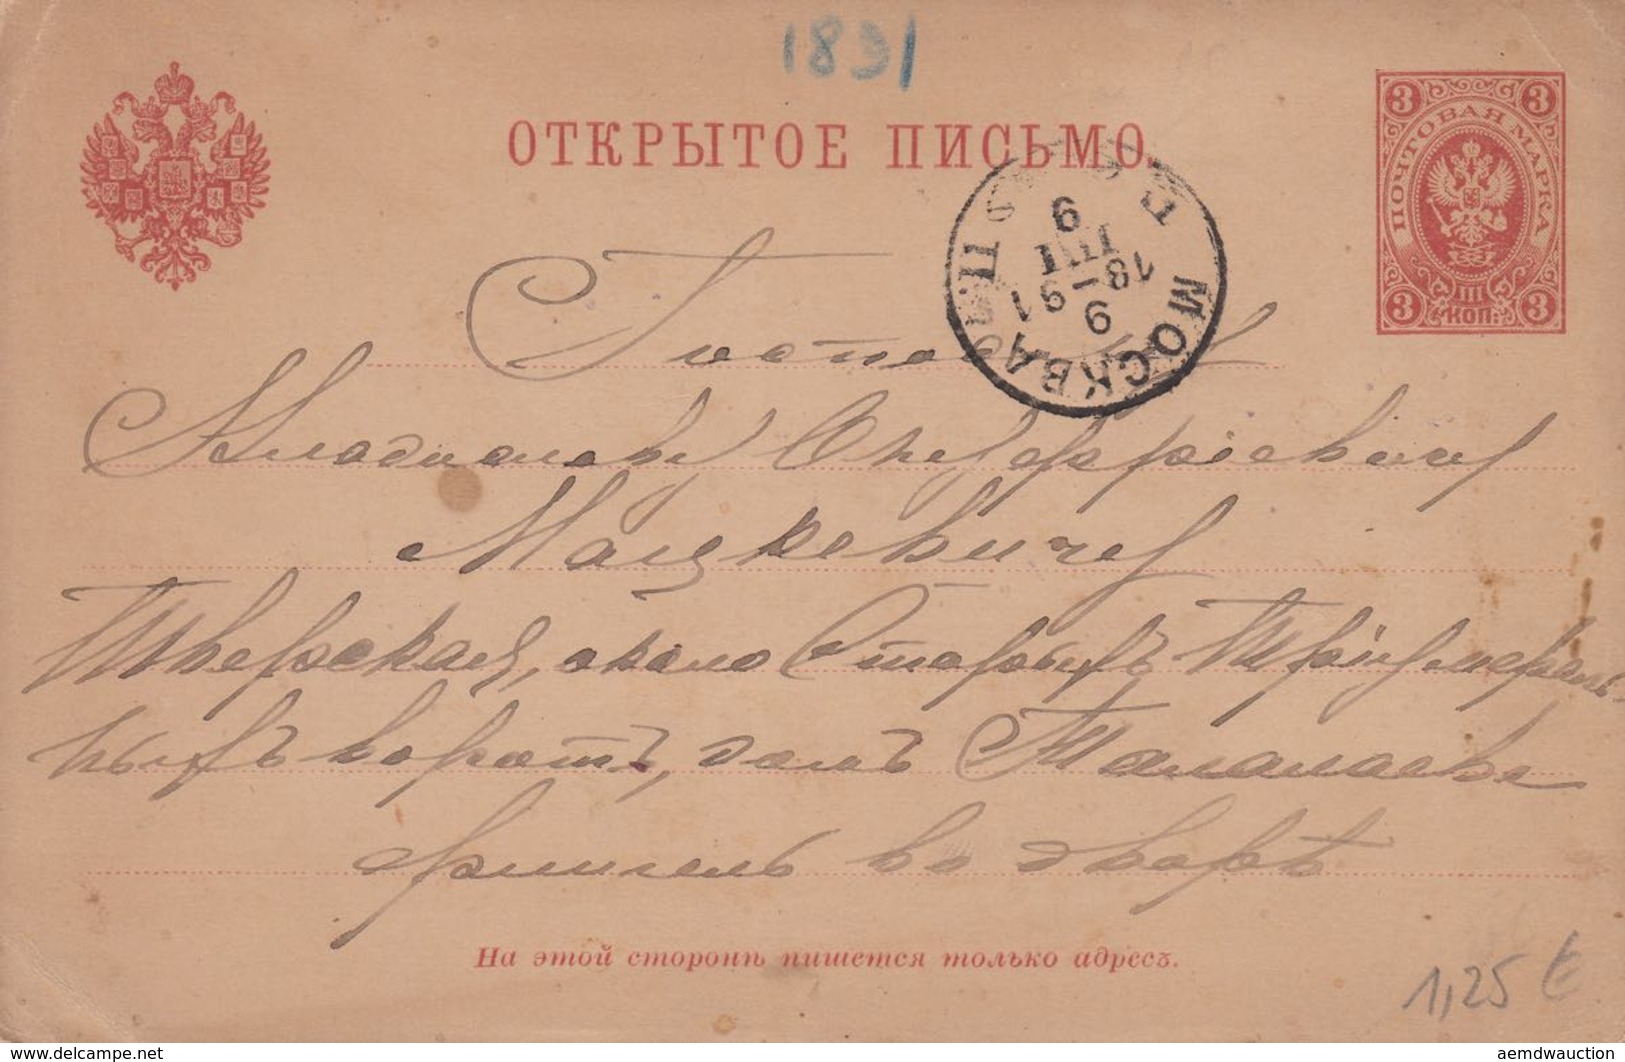 1891
ОТКРЫТОЕ ПИСЬМО.
3 3
ПОЧТОВАЯ МАРКА
III
3 КОП. 3
МОСКВА
9
III
1891
9
Господину
Андреевичу
Мацкевичу
Тверская, около Старыхъ Тріумфаль-
ныхъ воротъ, домъ Малолаева
флигель во дворѣ
На этой сторонѣ пишется только адресъ.
1,25 €
www.delcampe.net
aemdwauction